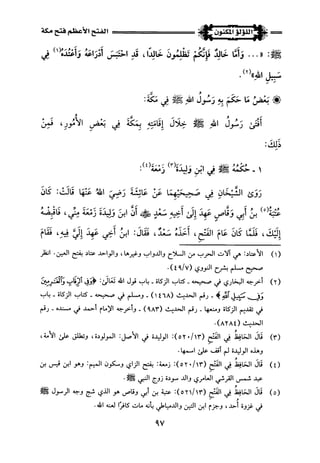 اللؤلؤ المكنون
الفتح الأعظم فتح مكة
ﷺ: «... وَأَمَّا خَالِدٌ فَإِنَّكُمْ تَظْلِمُونَ خَالِدًا، قَدِ احْتَبَسَ أَدْرَاعَهُ وَأَعْتُدَهُ(١) فِي
سَبِيلِ اللهِ»(٢).
بَعْضُ مَا حَكَمَ بِهِ رَسُولُ اللهِ ﷺ فِي مَكَّةَ:
أَفْتَى رَسُولُ اللهِ ﷺ خِلَالَ إِقَامَتِهِ بِمَكَّةَ فِي بَعْضِ الْأُمُورِ، فَمِنْ
ذَلِكَ:
١ - حُكْمُهُ ﷺ فِي ابْنِ وَلِيدَةِ(٣) زَمْعَةَ(٤):
رَوَى الشَّيْخَانِ فِي صَحِيحَيْهِمَا عَنْ عَائِشَةَ رَضِيَ اللهُ عَنْهَا قَالَتْ: كَانَ
عُتْبَةُ(٥) بنُ أَبِي وَقَّاصٍ عَهِدَ إِلَى أَخِيهِ سَعْدٍ أَنَّ ابْنَ وَلِيدَةِ زَمْعَةَ مِنِّي، فَاقْبِضْهُ
إِلَيْكَ، فَلَمَّا كَانَ عَامُ الفَتْحِ، أَخَذَهُ سَعْدٌ، فَقَالَ: ابنُ أَخِي عَهِدَ إِلَيَّ فِيهِ، فَقَامَ
(١) الأعتاد: هي آلات الحرب من السلاح والدواب وغيرها، والواحد عتاد بفتح العين. انظر
صحيح مسلم بشرح النووي (٤٩/٧).
(٢) أخرجه البخاري في صحيحه ـ كتاب الزكاة ـ باب قول الله تَعَالَى: ﴿وَفِي الرِّقَابِ وَالْغَارِمِينَ
وَفِي سَبِيلِ اللَّهِ﴾ ـ رقم الحديث (١٤٦٨) ـ ومسلم في صحيحه ـ كتاب الزكاة ـ باب
في تقديم الزكاة ومنعها ـ رقم الحديث (٩٨٣) ـ وأخرجه الإمام أحمد في مسنده ـ رقم
الحديث (٨٢٨٤).
(٣) قَالَ الحَافِظُ فِي الفَتْحِ (٥٢٠/١٣): الوليدة في الأصل: المولودة، وتطلق على الأمة،
وهذه الوليدة لم أقف على اسمها.
(٤) قَالَ الحَافِظُ فِي الفَتْحِ (٥٢٠/١٣): زمعة: بفتح الزاي وسكون الميم: وهو ابن قيس بن
عبد شمس القرشي العامري والد سودة زوج النبي ﷺ.
(٥) قَالَ الحَافِظُ فِي الفَتْحِ (٥٢١/١٣): عتبة بن أبي وقاص هو الذي شج وجه الرسول ﷺ
في غزوة أحد، وجزم ابن التين والدمياطي بأنه مات كافرًا لعنه الله.
٩٧